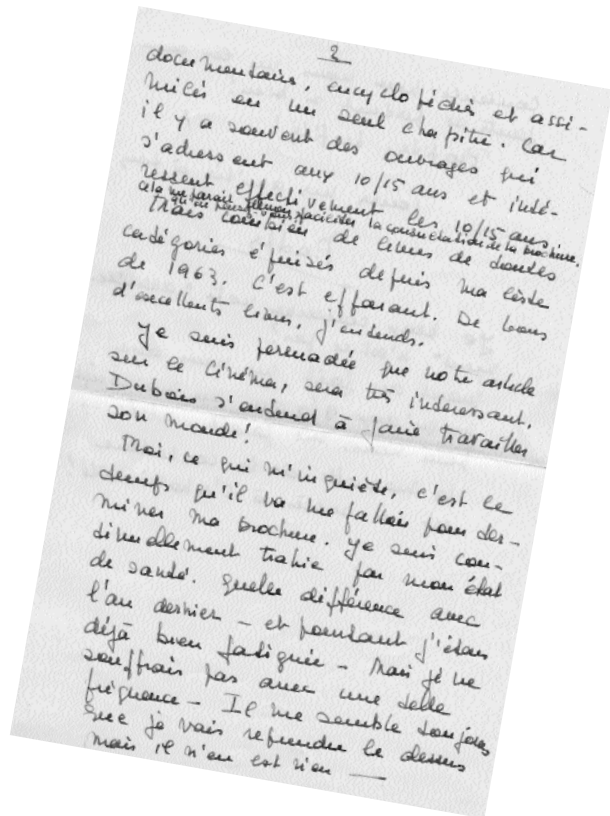 2
documentaires, encyclopédies et assi-
milés en un seul chapitre. Car
il y a souvent des ouvrages qui
s'adressent aux 10/15 ans et inté-
ressent effectivement les 10/15 ans.
cela me paraît faciliter la consultation de la brochure.
Mais combien de livres de toutes
catégories épuisés depuis ma liste
de 1963. C'est effarant. De bons
d'excellents livres, j'entends.
Je suis persuadée que notre article
sur le Cinéma, sera très intéressant.
Dubois s'entend à faire travailler
son monde !
Moi, ce qui m'inquiète, c'est le
temps qu'il va me falloir pour ter-
miner ma brochure. Je suis con-
tinuellement trahie par mon état
de santé. Quelle différence avec
l'an dernier – et pourtant j'étais
déjà bien fatiguée – Mais je ne
souffrais pas avec une telle
fréquence – Il me semble toujours
que je vais reprendre le dessus
mais il n'en est rien —